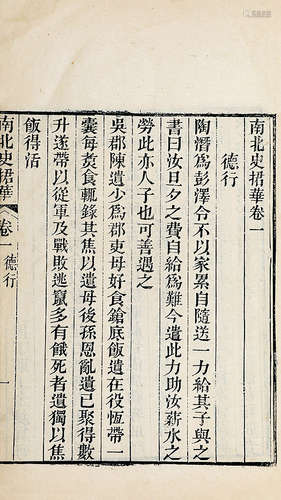 南北史捃華卷一
德行
陶潛爲彭澤令不以家累自隨送一力給其子與之
書曰汝旦夕之費自給爲難今遣此力助汝薪水之
勞此亦人子也可善遇之
吳郡陳遺少爲郡吏母好食鎗底飯遺在役恆帶一
囊每煑食輒錄其焦以遺母後孫恩亂遺已聚得數
升遂帶以從軍及戰敗逃竄多有餓死者遺獨以焦
飯得活
南北史捃華
卷一
德行
一